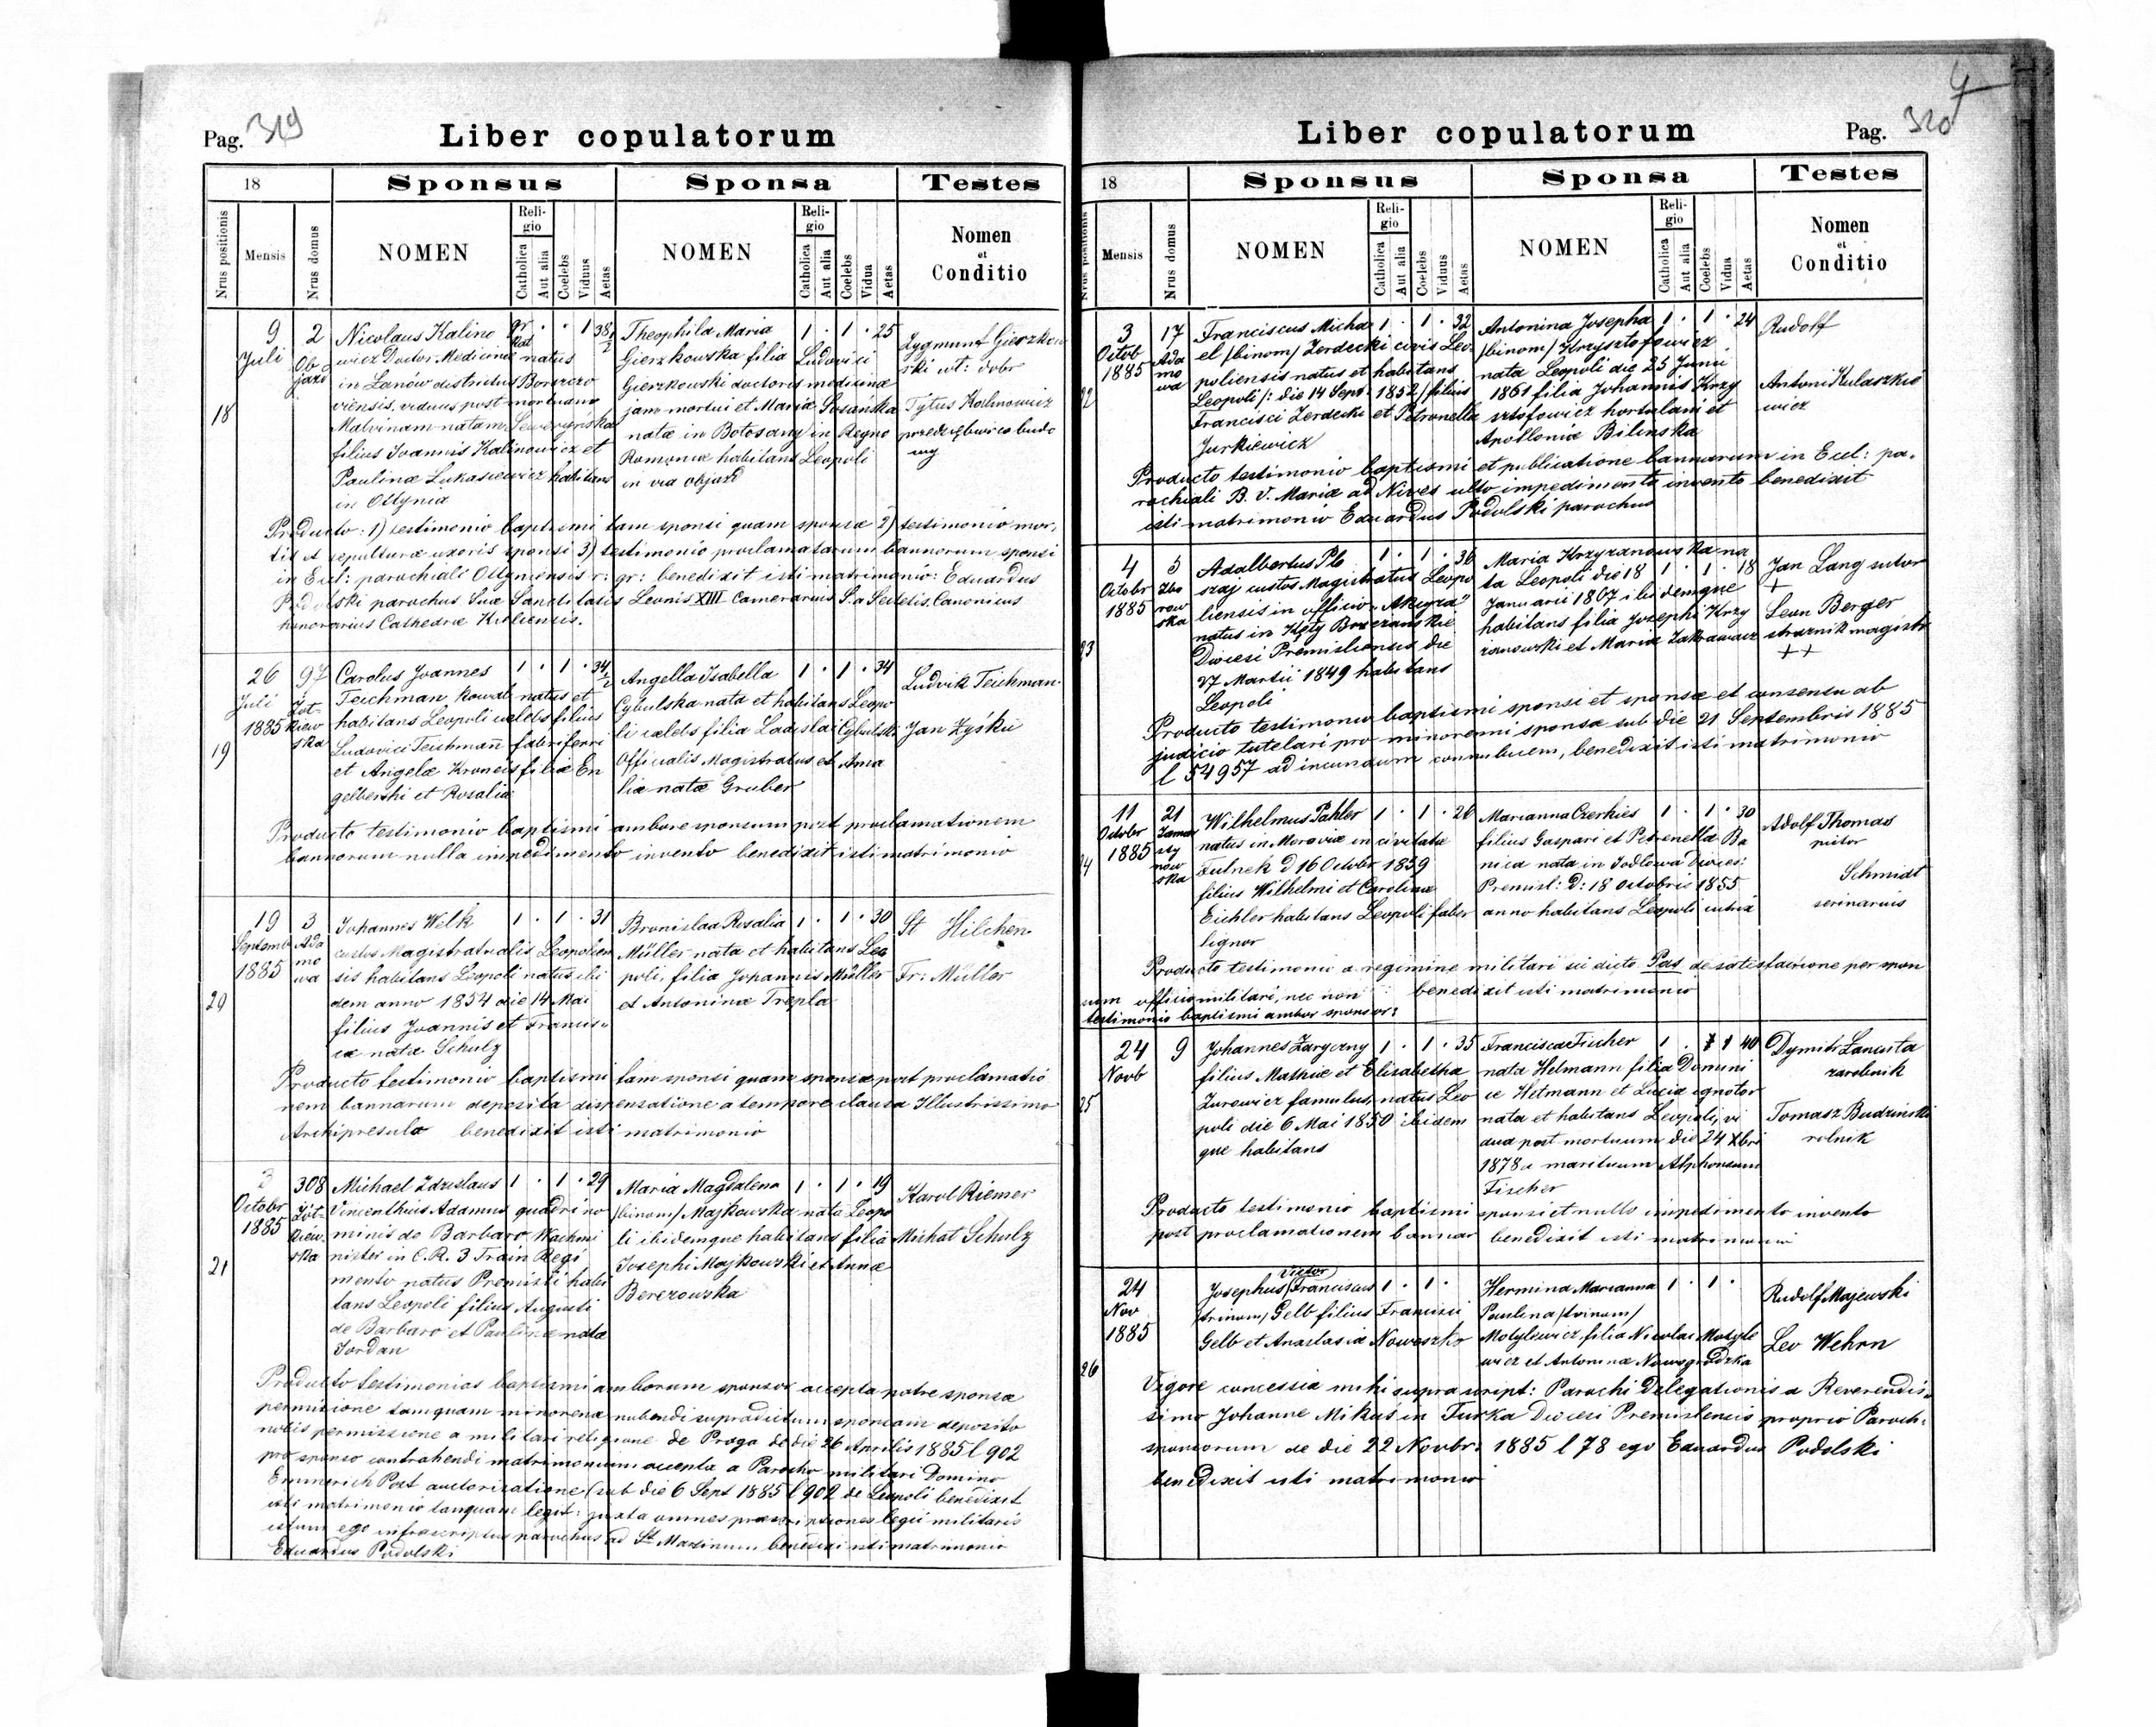 Pag. 319
Liber copulatorum
18
Sponsus
Sponsa
Testes
Nrus positionis
Mensis
Nrus domus
NOMEN
Religio
Catholica
Aut alia
Coelebs
Viduus
Aetas
NOMEN
Religio
Catholica
Aut alia
Coelebs
Vidua
Aetas
Nomen
et
Conditio
18
9
Juli
2
Ob
jazd
Nicolaus Kalino
wicz Doctor Medicinae natus
in Lanów districtus Borszczo
viensis, viduus post mortuam
Malvinam natam
filius Joannis Kalinowicz et
Paulinae Lukasiewicz habitans
in Ottynia
gr. kat . . 1 38 1/2
Theophila Maria
Gierzkowska filia Ludovici
Gierzkowski doctoris medicinae
jam mortui et Mariae Sosańska
nata in Botosany in Regno
Romoniae habitans Leopoli
in via objazd
1 . 1 . 25
Zygmunt Gierzkow
ski wł: dobr
Tytus Kalinowicz
przedsębwica budo
wy
Producto: 1) testimonio baptismi tam sponsi quam sponsae 2) testimonio mor,
tis et sepulturae uxoris sponsi 3) testimonio proclamatarum bannorum sponsi
in Eccl: parochiali Ottyniensis r: gr: benedixit isti matrimonio: Eduardus
Podolski parochus Suae Sanctitatis Leonis XIII Camerarius S. a Secretis, Canonicus
honorarius Cathedrae
19
26
Juli
1885
97
Żół-
kiew
ska
Carolus Joannes
Teichman kowal natus et
habitans Leopoli caelebs filius
Ludovici Teichmañ fabri ferri
et Angelae Kroneis filiae En
gelberthi et Rosaliae
1 . 1 . 34 1/2
Angella Isabella
Cybulska nata et habitans Leopo
li caelebs filia Ladislai Cybulski
Officialis Magistratus et Ama
liae natae Gruber
1 . 1 . 34
Ludvik Teichman
Jan Zyśku
Producto testimonio baptismi ambore sponsum post proclamationem
bannorum nulla impedimento invento benedixit isti matrimonio
20
19
Septemb
1885
3
Ada
mo
wa
Johannes Welk
custos Magistratualis Leopolien
sis habitans Leopoli natus ibi
dem anno 1854 die 14 Mai
filius Joannis et Francis
cae natae Schulz
1 . 1 . 31
Bronislaa Rosalia
Müller nata et habitans Leo
poli, filia Johannis Müller
et Antoninae Trepla
1 . 1 . 30
St Hilchen
Fr: Müller
Producto testimonio baptismi tam sponsi quam sponsae post proclamatio
nem bannarum deposita dispensatione a tempore clausa Illustrissimo
Archipresula benedixit isti matrimonio
21
3
Octobr
1885
308
Żół-
kiew.
ska
Michael Zdzislaus
Vincenthius Adamus quadri no
minis de Barbaro Wachmi
nister in C. R. 3 Train Regi
mento natus Premisli habi
tans Leopoli filius Augusti
de Barbaro et Paulinae nata
Jordan
1 . 1 . 29
Maria Magdalena
/binom/ Majkowska nata Leopo
li ibidemque habitans filia
Josephi Majkowski et Annae
Berezowska
1 . 1 . 19
Karol Riemer
Michał Schulz
Producto testimonios baptismi amborum sponsos accepta patre sponsa
permissione tamquam minorena nubendi supradictum sponsum deposito
nobis permissione a militari religione de Praga de die 26 Aprilis 1885 l 902
pro sponso contrahendi matrimonium accepta a Parocho militari Domino
Emmerich Post auctorisatione (sub die 6 Sept 1885 l 902 de Leopoli benedixit
isti matrimonio tanquam legit: juxta omnes praescriptiones legis militaris
istum ego infrascriptus parochus ad St Martinum benedixi isti matrimonio
Eduardus Podolski
4
Liber copulatorum
Pag. 320
18
Sponsus
Sponsa
Testes
Nrus positionis
Mensis
Nrus domus
NOMEN
Religio
Catholica
Aut alia
Coelebs
Viduus
Aetas
NOMEN
Religio
Catholica
Aut alia
Coelebs
Vidua
Aetas
Nomen
et
Conditio
22
3
Octob
1885
17
Ada
mo
wa
Franciscus Micha
el /binom/ Zerdecki civis Leo
poliensis natus et habitans
Leopoli /: die 14 Sept. 1852 / filius
Francisci Zerdecki et Petronella
Jurkiewicz
1 . 1 . 32
Antonina Josepha
/binom/ Krzysztofowicz
nata Leopoli die 25 Junii
1861 filia Johannis Krzy
sztofowicz hortulani et
Apolloniae Bilinska
1 . 1 . 24
Rudolf
Antoni Kulaszkie
wicz
Producto testimonio baptismi et publicatione bannarum in Eccl: pa.
rochiali B. V. Mariae ad Nives ullo impedimento invento benedixit
isti matrimonio Eduardus Podolski parochus
23
4
Octobr
1885
5
Zbo
row
ska
Adalbertus Pło
szaj custos Magistratus Leopo
liensis in officio "Akcyza"
natus in Kęty
Dioicesi Premisliensis die
27 Martii 1849 habitans
Leopoli
1 . 1 . 36
Maria Krzyzanowska na
ta Leopoli die 18
Januarii 1867 ibidemque
habitans filia Josephi Krzy
zanowski et Mariae Zakrawacz
1 . 1 . 18
Jan Lang sutor
+
Leon Berger
strażnik magistr
++
Producto testimonio baptismi sponsi et sponsae et consensu ab
judicio tutelari pro minorenni sponsae sub die 21 Septembris 1885
l 54957 ad incundum connubium, benedixit isti matrimonio
24
11
Octobr
1885
21
Zamar
sty
now
ska
Wilhelmus Pahler
natus in Moraviae in civitate
Fulnek d 16 Octobr 1859
filius Wilhelmi et Carolinae
Eichler habitans Leopoli faber
lignor
1 . 1 . 26
Marianna Czerkies
filius Gaspari et Petronella Ba
nica nata in Jodłowa Dioeces:
Premisl: D: 18 Octobris 1855
anno habitans Leopoli
1 . 1 . 30
Adolf Thomas
pictor
Schmidt
serinarius
Producto testimonio a regimine militari sic dicto Pas de satisfactione per spon
sum officio militari, nec non benedixit isti matrimonio
testimonio baptismi ambor sponsor:
25
24
Novb
9
Johannes Zaryczny
filius Mathiae et Elisabetha
Zurowicz famulus, natus Leo
poli die 6 Mai 1850 ibidem
que habitans
1 . 1 . 35
Francisca Fischer
nata Helmann filia Domini
ce Hetmann et Lucia ognotor
nata et habitans Leopoli, vi
dua post mortuum die 24 Xbri
1878 a marituum Alphonsum
Fischer
1 . 1 40
Dymitr Lancuta
zarobnik
Tomasz Budzinski
rolnik
Producto testimonio baptismi sponsi et nullo impedimento invento
post proclamationem bannar benedixit isti matrimonio
26
24
Nov
1885
Victor
Josephus /Franciscus
/trinom/ Gelb filius Francisci
Gelb et Anastasia Nowoszko
1 . 1 .
Hermina Marianna
Paulina /trinom/
Motylewicz filia Nicolai Motyle
wicz et Antoninae Nowogrodzka
1 . 1 .
Rudolf Majewski
Leo Wehrn
Vigore concessia mihi supra script: Parochi Delegationis a Reverendis
simo Johanne Mikus in Turka Dioecesi Premislensis proprio Paroch:
sponsorum de die 22 Novbr. 1885 l 78 ego Eduardus Podolski
benedixit isti matrimonio